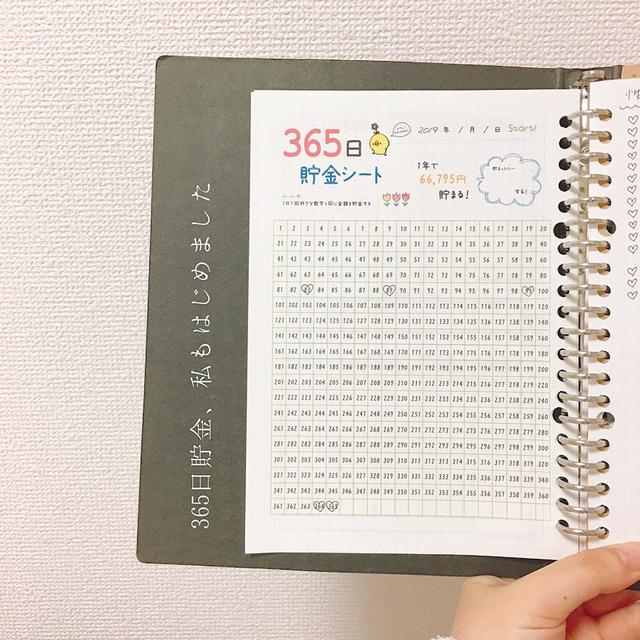 365日貯金、私もはじめました
365日
貯金シート
2019年 1月 1日 Start!
1年で
66,795円
貯まる!
貯まったらー
する!
1日1回好きな数字と同じ金額を貯金する
1 2 3 4 5 6 7 8 9 10 11 12 13 14 15 16 17 18 19 20
21 22 23 24 25 26 27 28 29 30 31 32 33 34 35 36 37 38 39 40
41 42 43 44 45 46 47 48 49 50 51 52 53 54 55 56 57 58 59 60
61 62 63 64 65 66 67 68 69 70 71 72 73 74 75 76 77 78 79 80
81 82 83 84 85 86 87 88 89 90 91 92 93 94 95 96 97 98 99 100
101 102 103 104 105 106 107 108 109 110 111 112 113 114 115 116 117 118 119 120
121 122 123 124 125 126 127 128 129 130 131 132 133 134 135 136 137 138 139 140
141 142 143 144 145 146 147 148 149 150 151 152 153 154 155 156 157 158 159 160
161 162 163 164 165 166 167 168 169 170 171 172 173 174 175 176 177 178 179 180
181 182 183 184 185 186 187 188 189 190 191 192 193 194 195 196 197 198 199 200
201 202 203 204 205 206 207 208 209 210 211 212 213 214 215 216 217 218 219 220
221 222 223 224 225 226 227 228 229 230 231 232 233 234 235 236 237 238 239 240
241 242 243 244 245 246 247 248 249 250 251 252 253 254 255 256 257 258 259 260
261 262 263 264 265 266 267 268 269 270 271 272 273 274 275 276 277 278 279 280
281 282 283 284 285 286 287 288 289 290 291 292 293 294 295 296 297 298 299 300
301 302 303 304 305 306 307 308 309 310 311 312 313 314 315 316 317 318 319 320
321 322 323 324 325 326 327 328 329 330 331 332 333 334 335 336 337 338 339 340
341 342 343 344 345 346 347 348 349 350 351 352 353 354 355 356 357 358 359 360
361 362 363 364 365